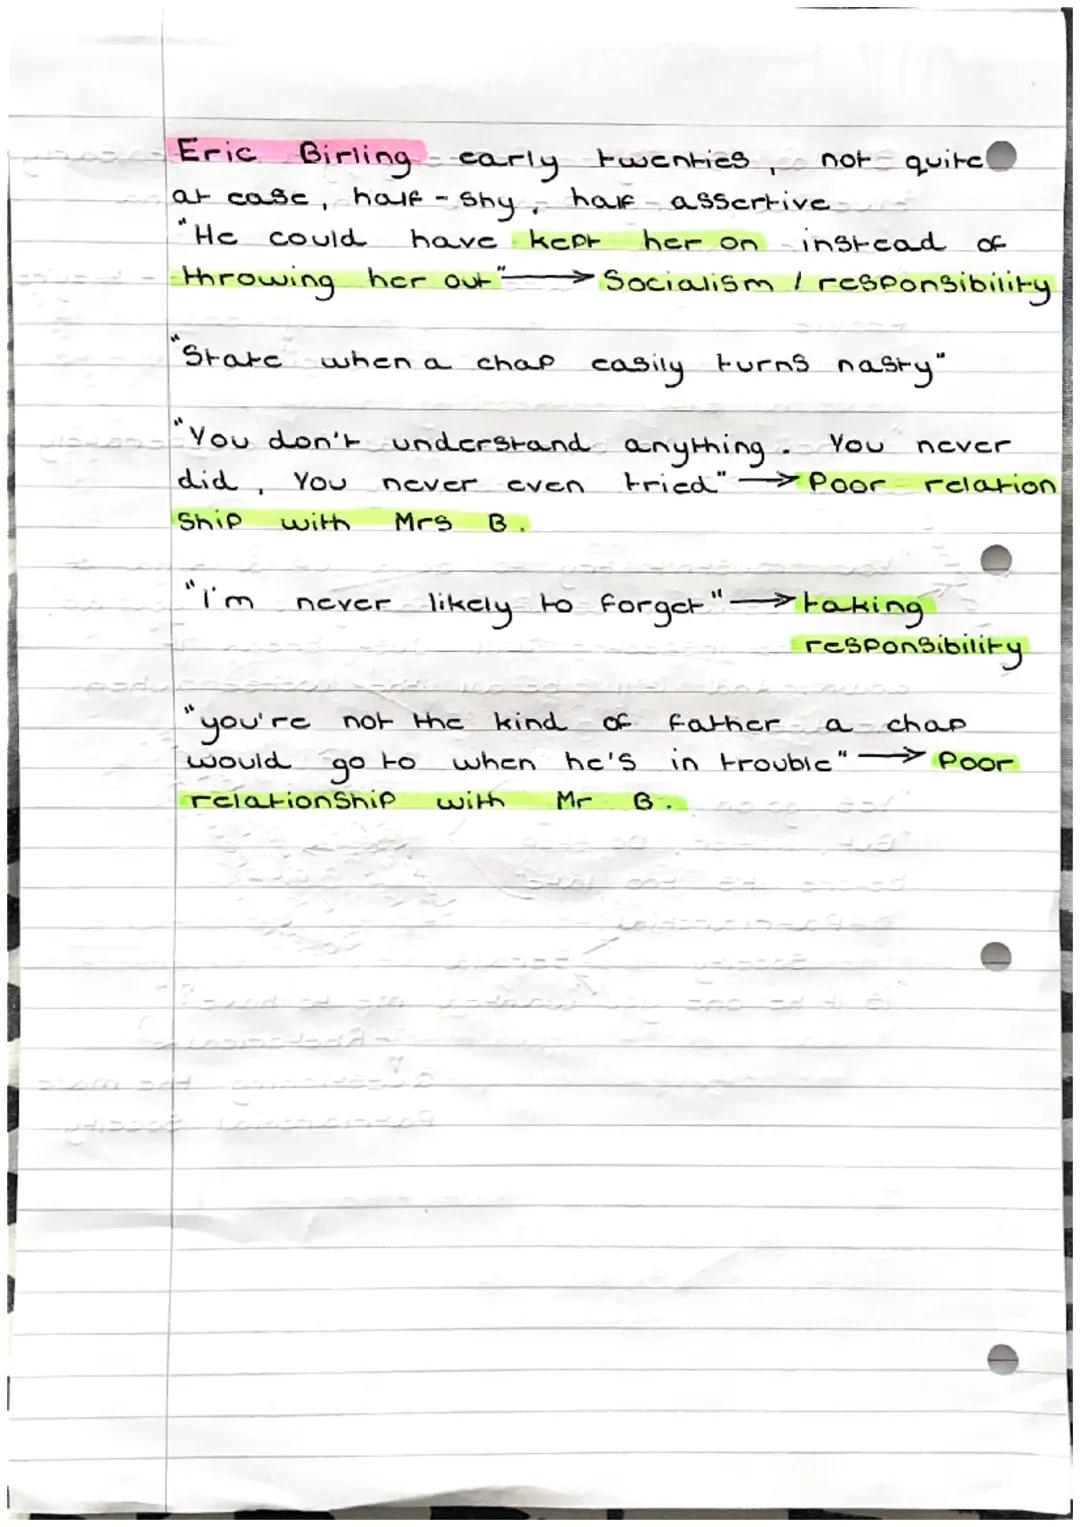 Eric Birling - early twenties, not quite
at ease, half-shy, half-assertive
"He could have kept her on instead of
throwing her out" → Socialism / responsibility
"State when a chap easily turns nasty"
"You don't understand anything. You never
did, You never even tried" → Poor relation
ship with Mrs B.
"I'm never likely to forget" → taking
responsibility
"you're not the kind of father a chap
would go to when he's in trouble" → Poor
relationship with Mr B.